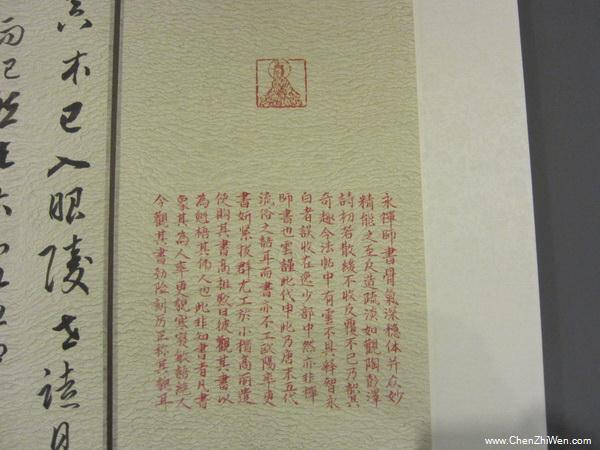 永禪師書骨氣深穩体并众妙
精能之至反造疏淡如觀陶彭澤
詩初若散緩不收反覆不已乃其
奇趣今法帖中有雲不具釋智永
白者誤收在逸少部中然亦非禪
師書也雲謹此代申此乃唐末五代
流俗之語耳而書亦不工歐陽率更
書妍紧拔群尤工於小楷高丽遣
使购其書高祖歎曰彼觀其書以
為魁梧其偉人也此非知書者凡書
象其為人率更貌寒寢敏語絕人
今觀其書勁險刻厉正称其貌耳
木已入眼陵
而已
www.ChenZhiWen.com